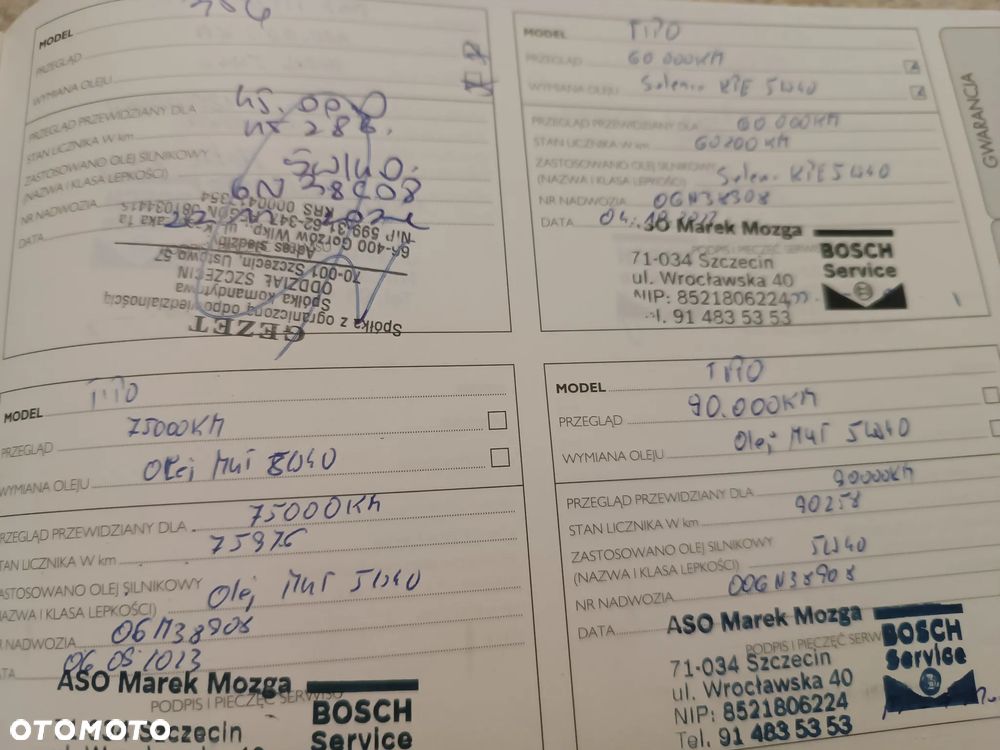 356
MODEL
PRZEGLĄD
WYMIANA OLEJU
PRZEGLĄD PRZEWIDZIANY DLA 45.000
STAN LICZNIKA W km 45 286.
ZASTOSOWANO OLEJ SILNIKOWY 5W40.
(NAZWA I KLASA LEPKOŚCI)
NR NADWOZIA
DATA
KRS
NIP 599-31-62-347
66-400 Gorzów Wlkp., ul.
Adres siedziby
70-001 Szczecin, Ustowo 57
ODDZIAŁ SZCZECIN
Spółka komandytowa
Spółka z ograniczoną odpowiedzialnością
GEZET
MODEL TIPO
PRZEGLĄD 60 000KM
WYMIANA OLEJU 5W40
PRZEGLĄD PRZEWIDZIANY DLA 60 000KM
STAN LICZNIKA W km 60200 KM
ZASTOSOWANO OLEJ SILNIKOWY
(NAZWA I KLASA LEPKOŚCI) 5W40
NR NADWOZIA
DATA
ASO Marek Mozga
PODPIS I PIECZĘĆ
71-034 Szczecin
ul. Wrocławska 40
NIP: 8521806224
Tel. 91 483 53 53
BOSCH
Service
GWARANCJA
MODEL TIPO
PRZEGLĄD 75000KM
WYMIANA OLEJU Olej 5W40
PRZEGLĄD PRZEWIDZIANY DLA 75000KM
STAN LICZNIKA W km 75976
ZASTOSOWANO OLEJ SILNIKOWY
(NAZWA I KLASA LEPKOŚCI) Olej 5W40
NR NADWOZIA
DATA
ASO Marek Mozga
PODPIS I PIECZĘĆ SERWISU
BOSCH
Service
Szczecin
MODEL TIPO
PRZEGLĄD 90.000KM
WYMIANA OLEJU Olej 5W40
PRZEGLĄD PRZEWIDZIANY DLA 90000KM
STAN LICZNIKA W km 90258
ZASTOSOWANO OLEJ SILNIKOWY
(NAZWA I KLASA LEPKOŚCI) 5W40
NR NADWOZIA
DATA
ASO Marek Mozga
PODPIS I PIECZĘĆ SERW
71-034 Szczecin
ul. Wrocławska 40
NIP: 8521806224
Tel. 91 483 53 53
BOSCH
Service
OTOMOTO